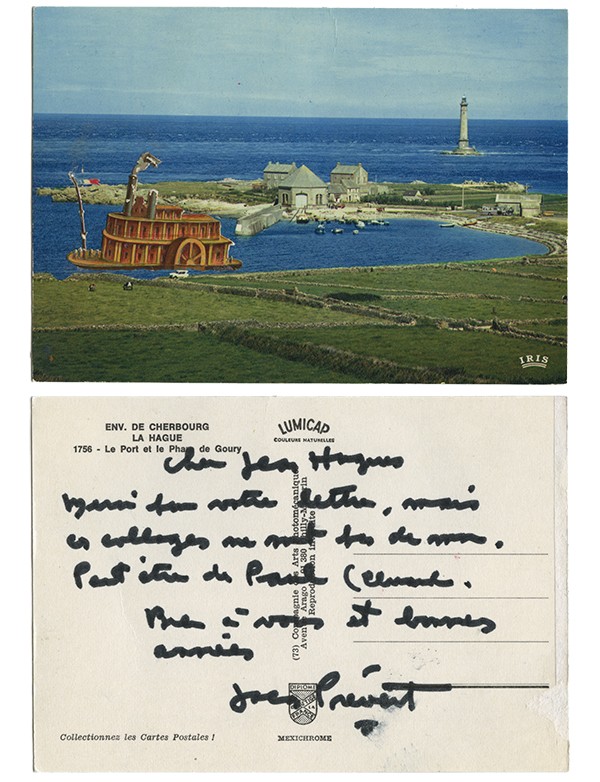 IRIS
ENV. DE CHERBOURG
LA HAGUE
1756 - Le Port et le Phare de Goury
LUMICAP
COULEURS NATURELLES
Cher Jean Hugues
Merci pour votre lettre, mais
ces collages ne sont pas de moi.
Peut être de Paul Eluard.
Bien à vous et bonnes
années
Jacques Prévert
(73) Compagnie des Arts Photomécaniques
Avenue Arago
Reproduction interdite
Collectionnez les Cartes Postales !
MEXICHROME